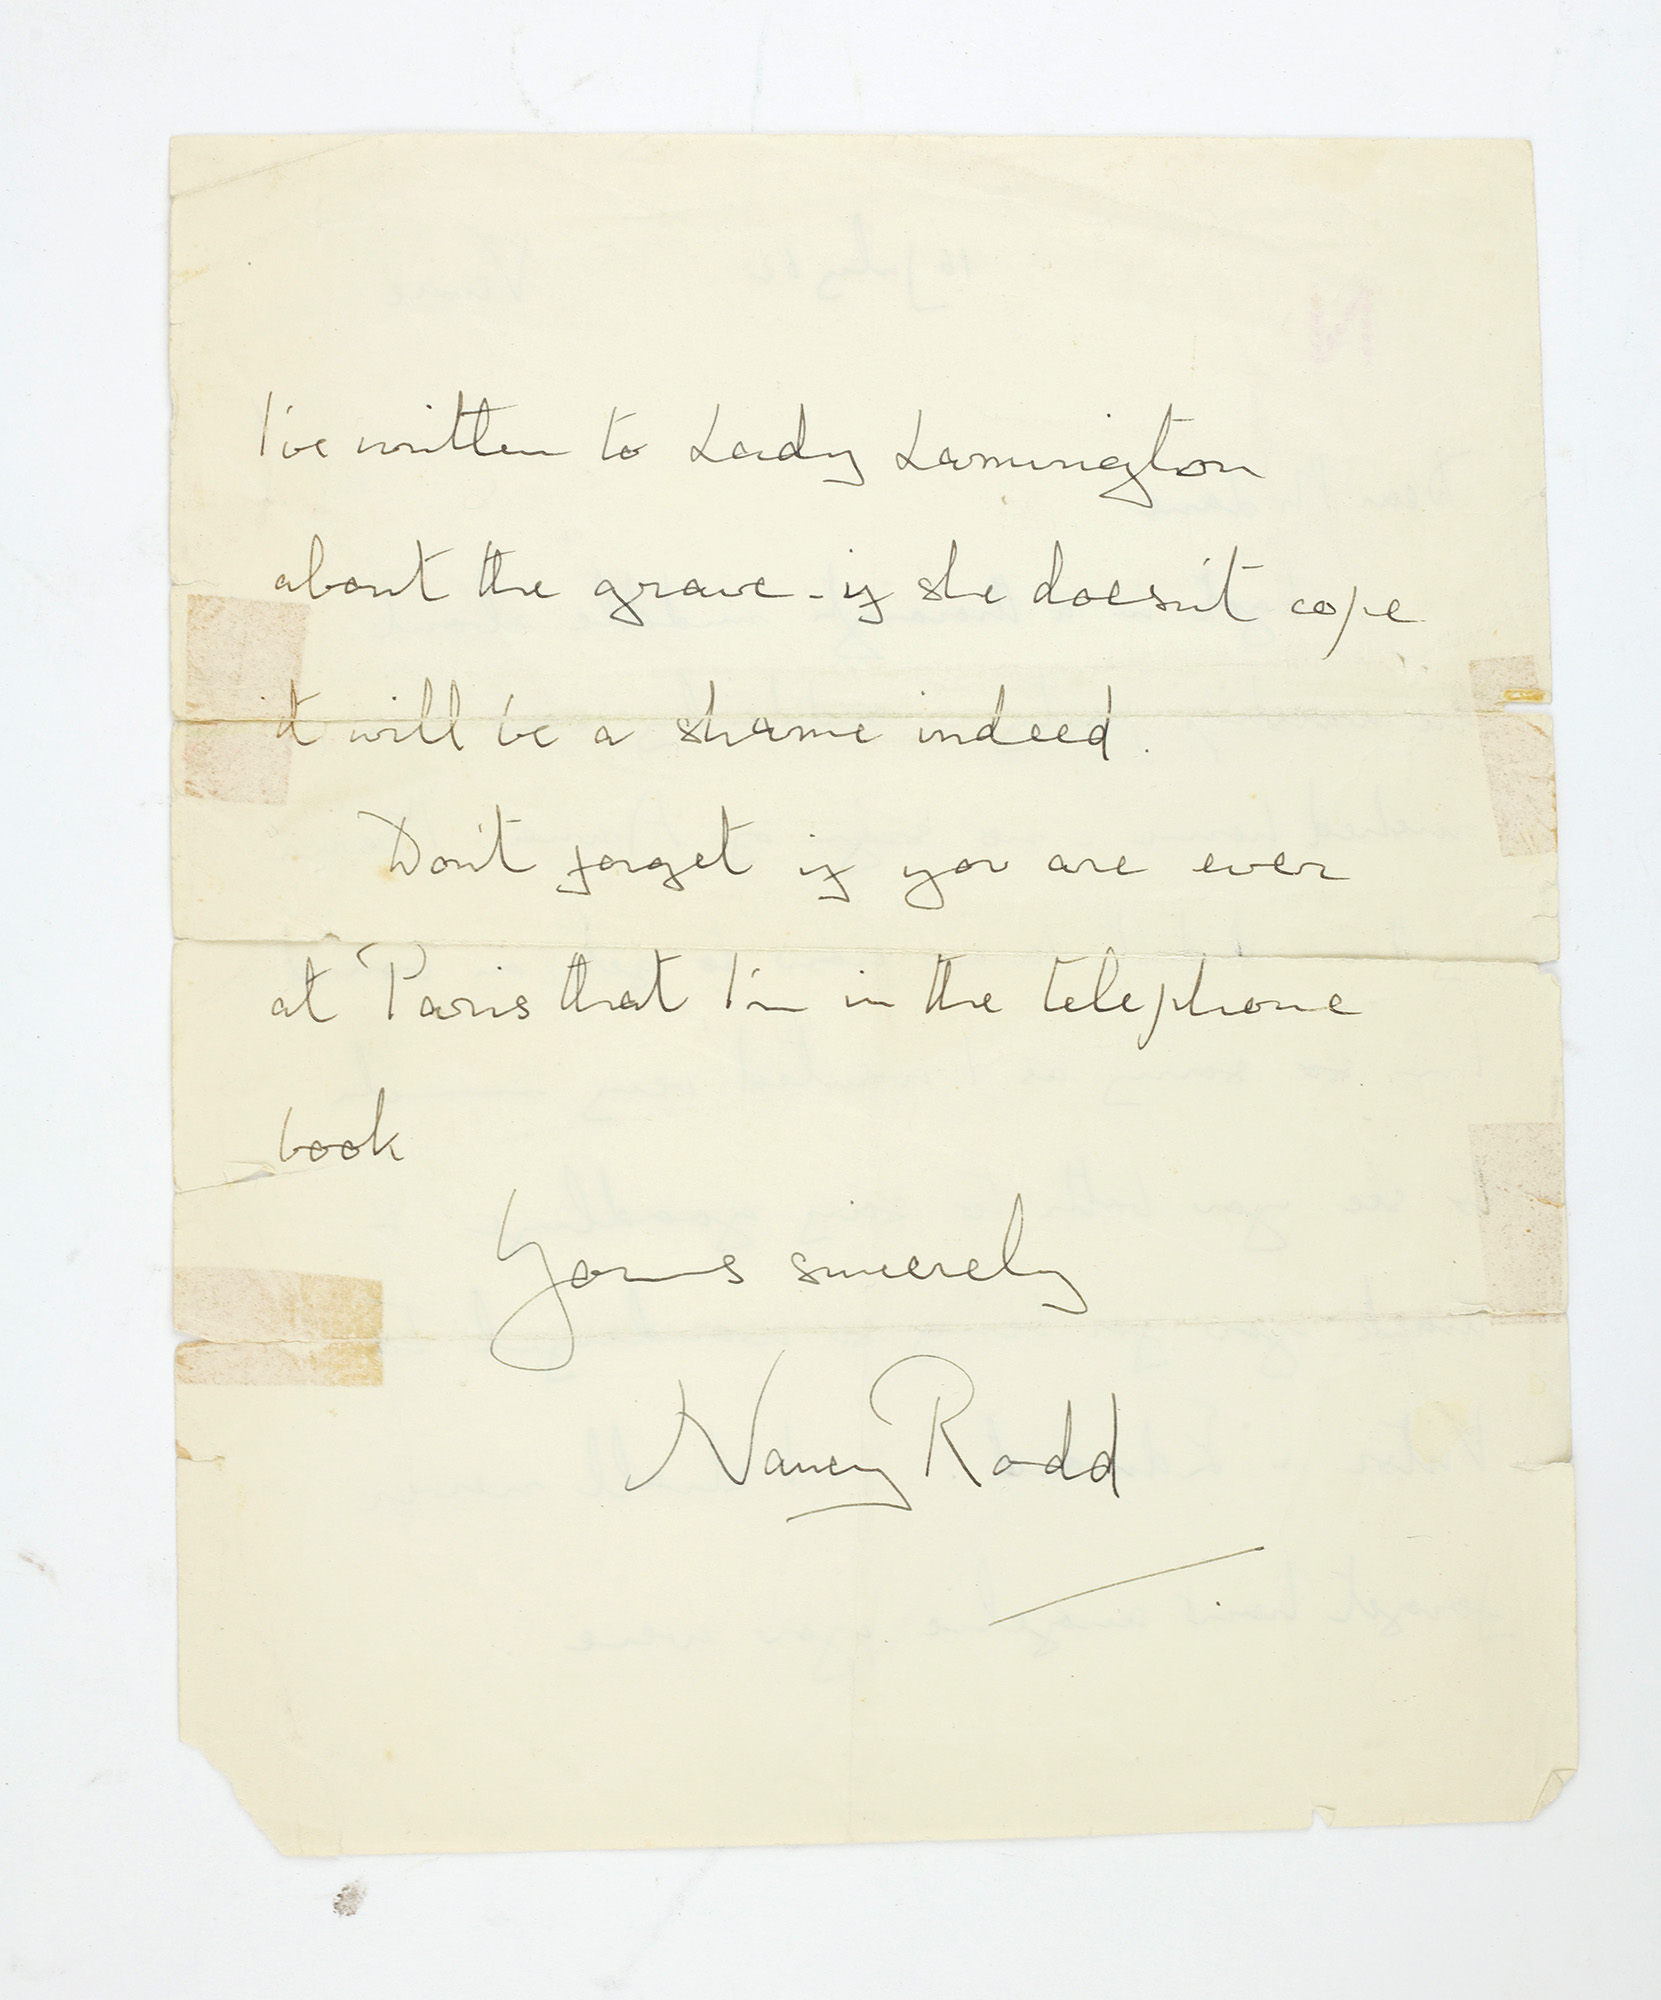 I've written to Lady Lamington
about the grave - if she doesn't cope
it will be a shame indeed.
Don't forget if you are ever
at Paris that I'm in the telephone
book
Yours sincerely
Nancy Rodd